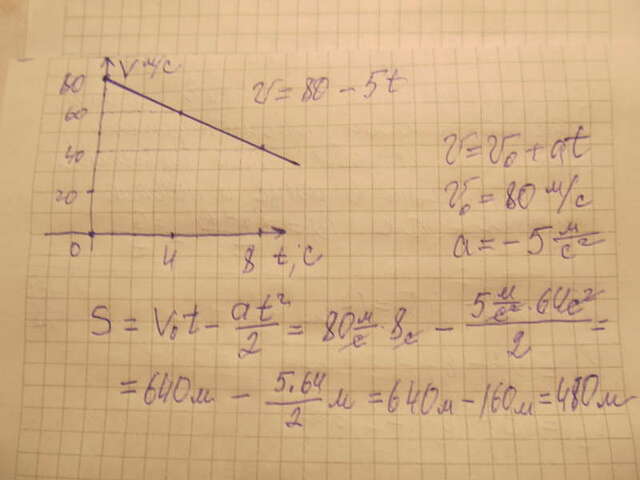 V м/с
80
60
40
20
0
4
8
t, c
v = 80 - 5t
v = v₀ + at
v₀ = 80 м/с
a = -5 м/с²
S = V₀t - at²/2 = 80 м/с · 8с - 5 м/с² · 64с²/2 =
= 640м - 5.64/2 м = 640м - 160м = 480м